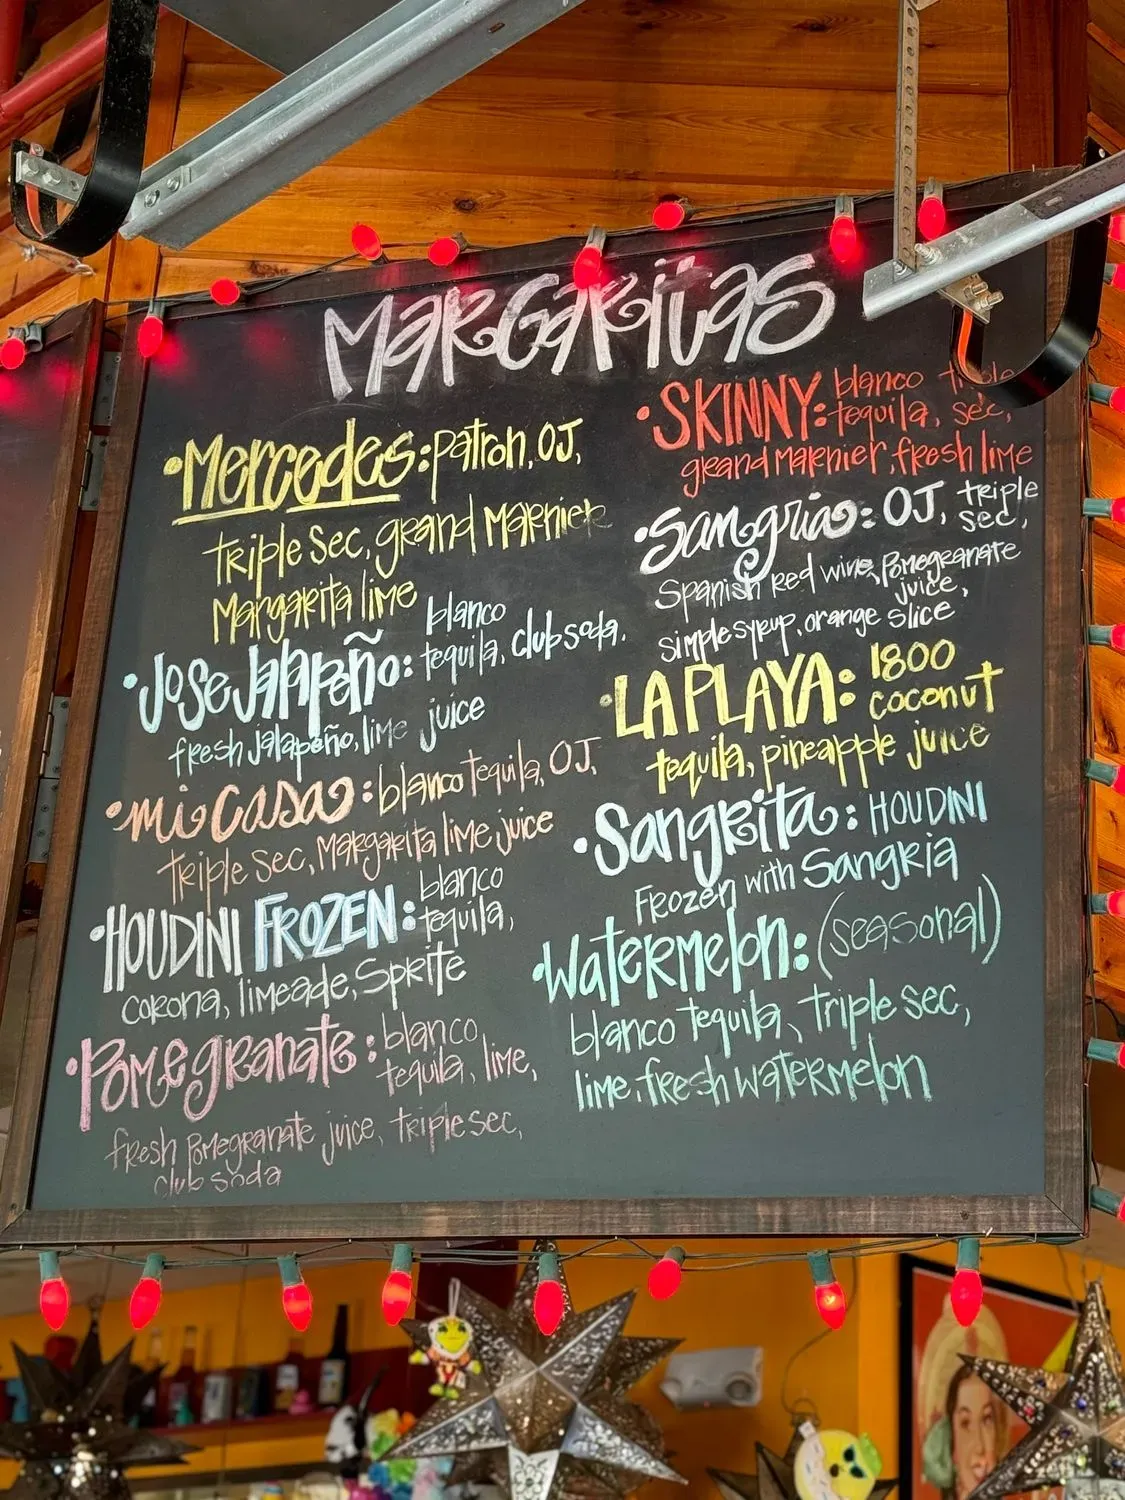 MARGARITAS
• Mercedes: Patron, OJ,
Triple Sec, grand Marnier
Margarita lime
• Jose Jalapeño: blanco
tequila, club soda,
fresh jalapeño, lime juice
• mi casa: blanco tequila, OJ,
Triple Sec, Margarita lime juice
• HOUDINI FROZEN: blanco
tequila,
corona, limeade, Sprite
• Pomegranate: blanco
tequila, lime,
fresh Pomegranate juice, triple sec,
club soda
• SKINNY: blanco triple
tequila, sec,
grand Marnier, fresh lime
• Sangria: OJ, triple
sec,
Spanish red wine, Pomegranate
juice,
simple syrup, orange slice
• LA PLAYA: 1800
coconut
tequila, pineapple juice
• Sangrita: HOUDINI
Frozen with Sangria
• Watermelon: (seasonal)
blanco tequila, triple sec,
lime, fresh watermelon